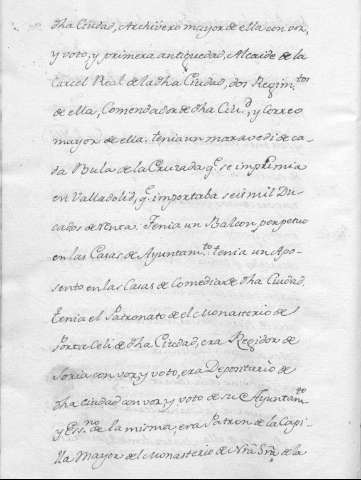 dha Ciudad, Archivero mayor de ella con voz,
y voto, y primera antiguedad, Alcaide de la
Carcel Real de la dha Ciudad, dos Regim.tos
de ella, Comendador de dha Ciu.d, y Correo
mayor de ella. tenia un maravedi de ca-
da Bula de la Cruzada q.e se imprimia
en Valladolid, q.e importaba seis mil Du-
cados de renta. Tenia un Balcon, perpetuo
en las Casas de Ayuntam.to tenia un Apo-
sento en las Casas de Comedias de dha Ciudad,
tenia el Patronato de el Monasterio de
Porta Celi de dha Ciudad, era Regidor de
Soria con voz y voto, era Depositario de
dha ciudad con voz, y voto de su Ayuntam.to
y Ess.no de la misma, era Patron de la Capi-
lla Mayor del Monasterio de Nrã Srã, de la